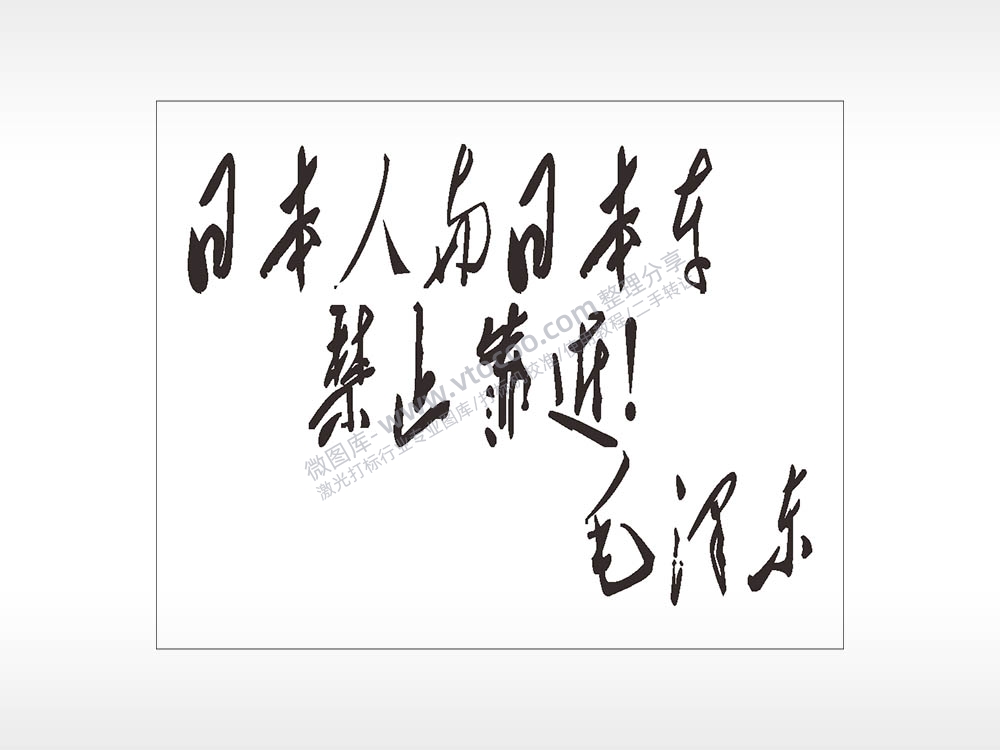 日本人与日本车
禁止靠近!
毛泽东
微图库-www.vtocoo.com 整理分享
激光打标行业专业图库/打标机校准/使用教程/二手转让